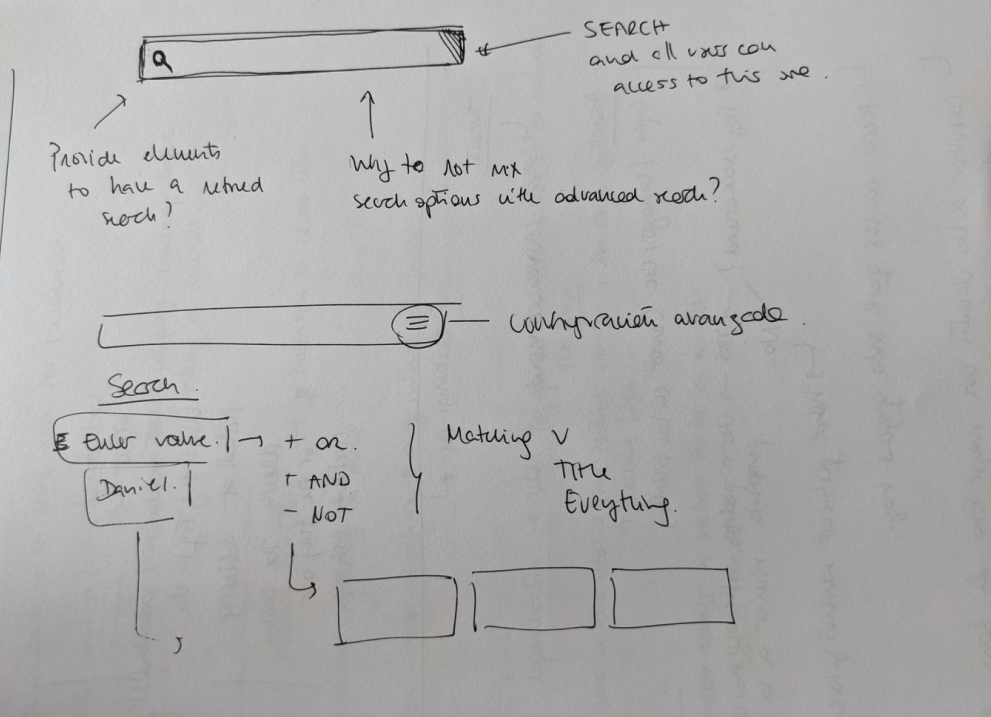 SEARCH
and all users can
access to this one.
Provide elements
to have a refined
search?
Why to not mix
search options with advanced search?
Configuración avanzada.
Search.
Enter value. + OR.
+ AND
- NOT
Daniel.
Matching V
Title
Everything.